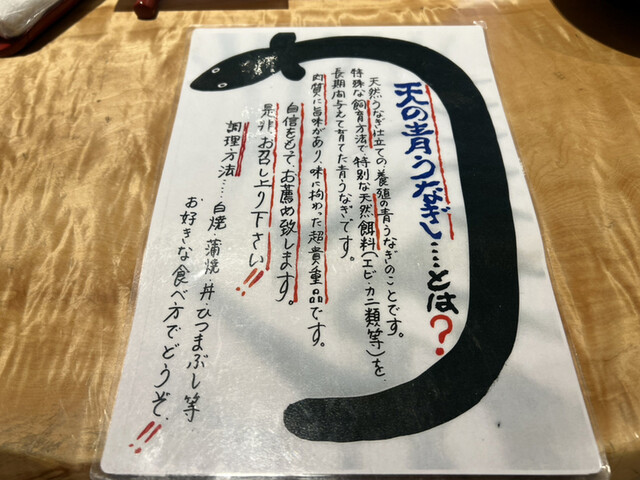 天の青うなぎ……とは?
天然うなぎ仕立ての、養殖の青うなぎのことです。
特殊な飼育方法で、特別な天然餌料(エビ・カニ類等)を
長期間与えて育てた青うなぎです。
肉質に旨味があり、味に拘わった超貴重品です。
自信をもって、お薦め致します。
是非お召し上り下さい!!
調理方法……白焼・蒲焼・丼・ひつまぶし等
お好きな食べ方でどうぞ!!